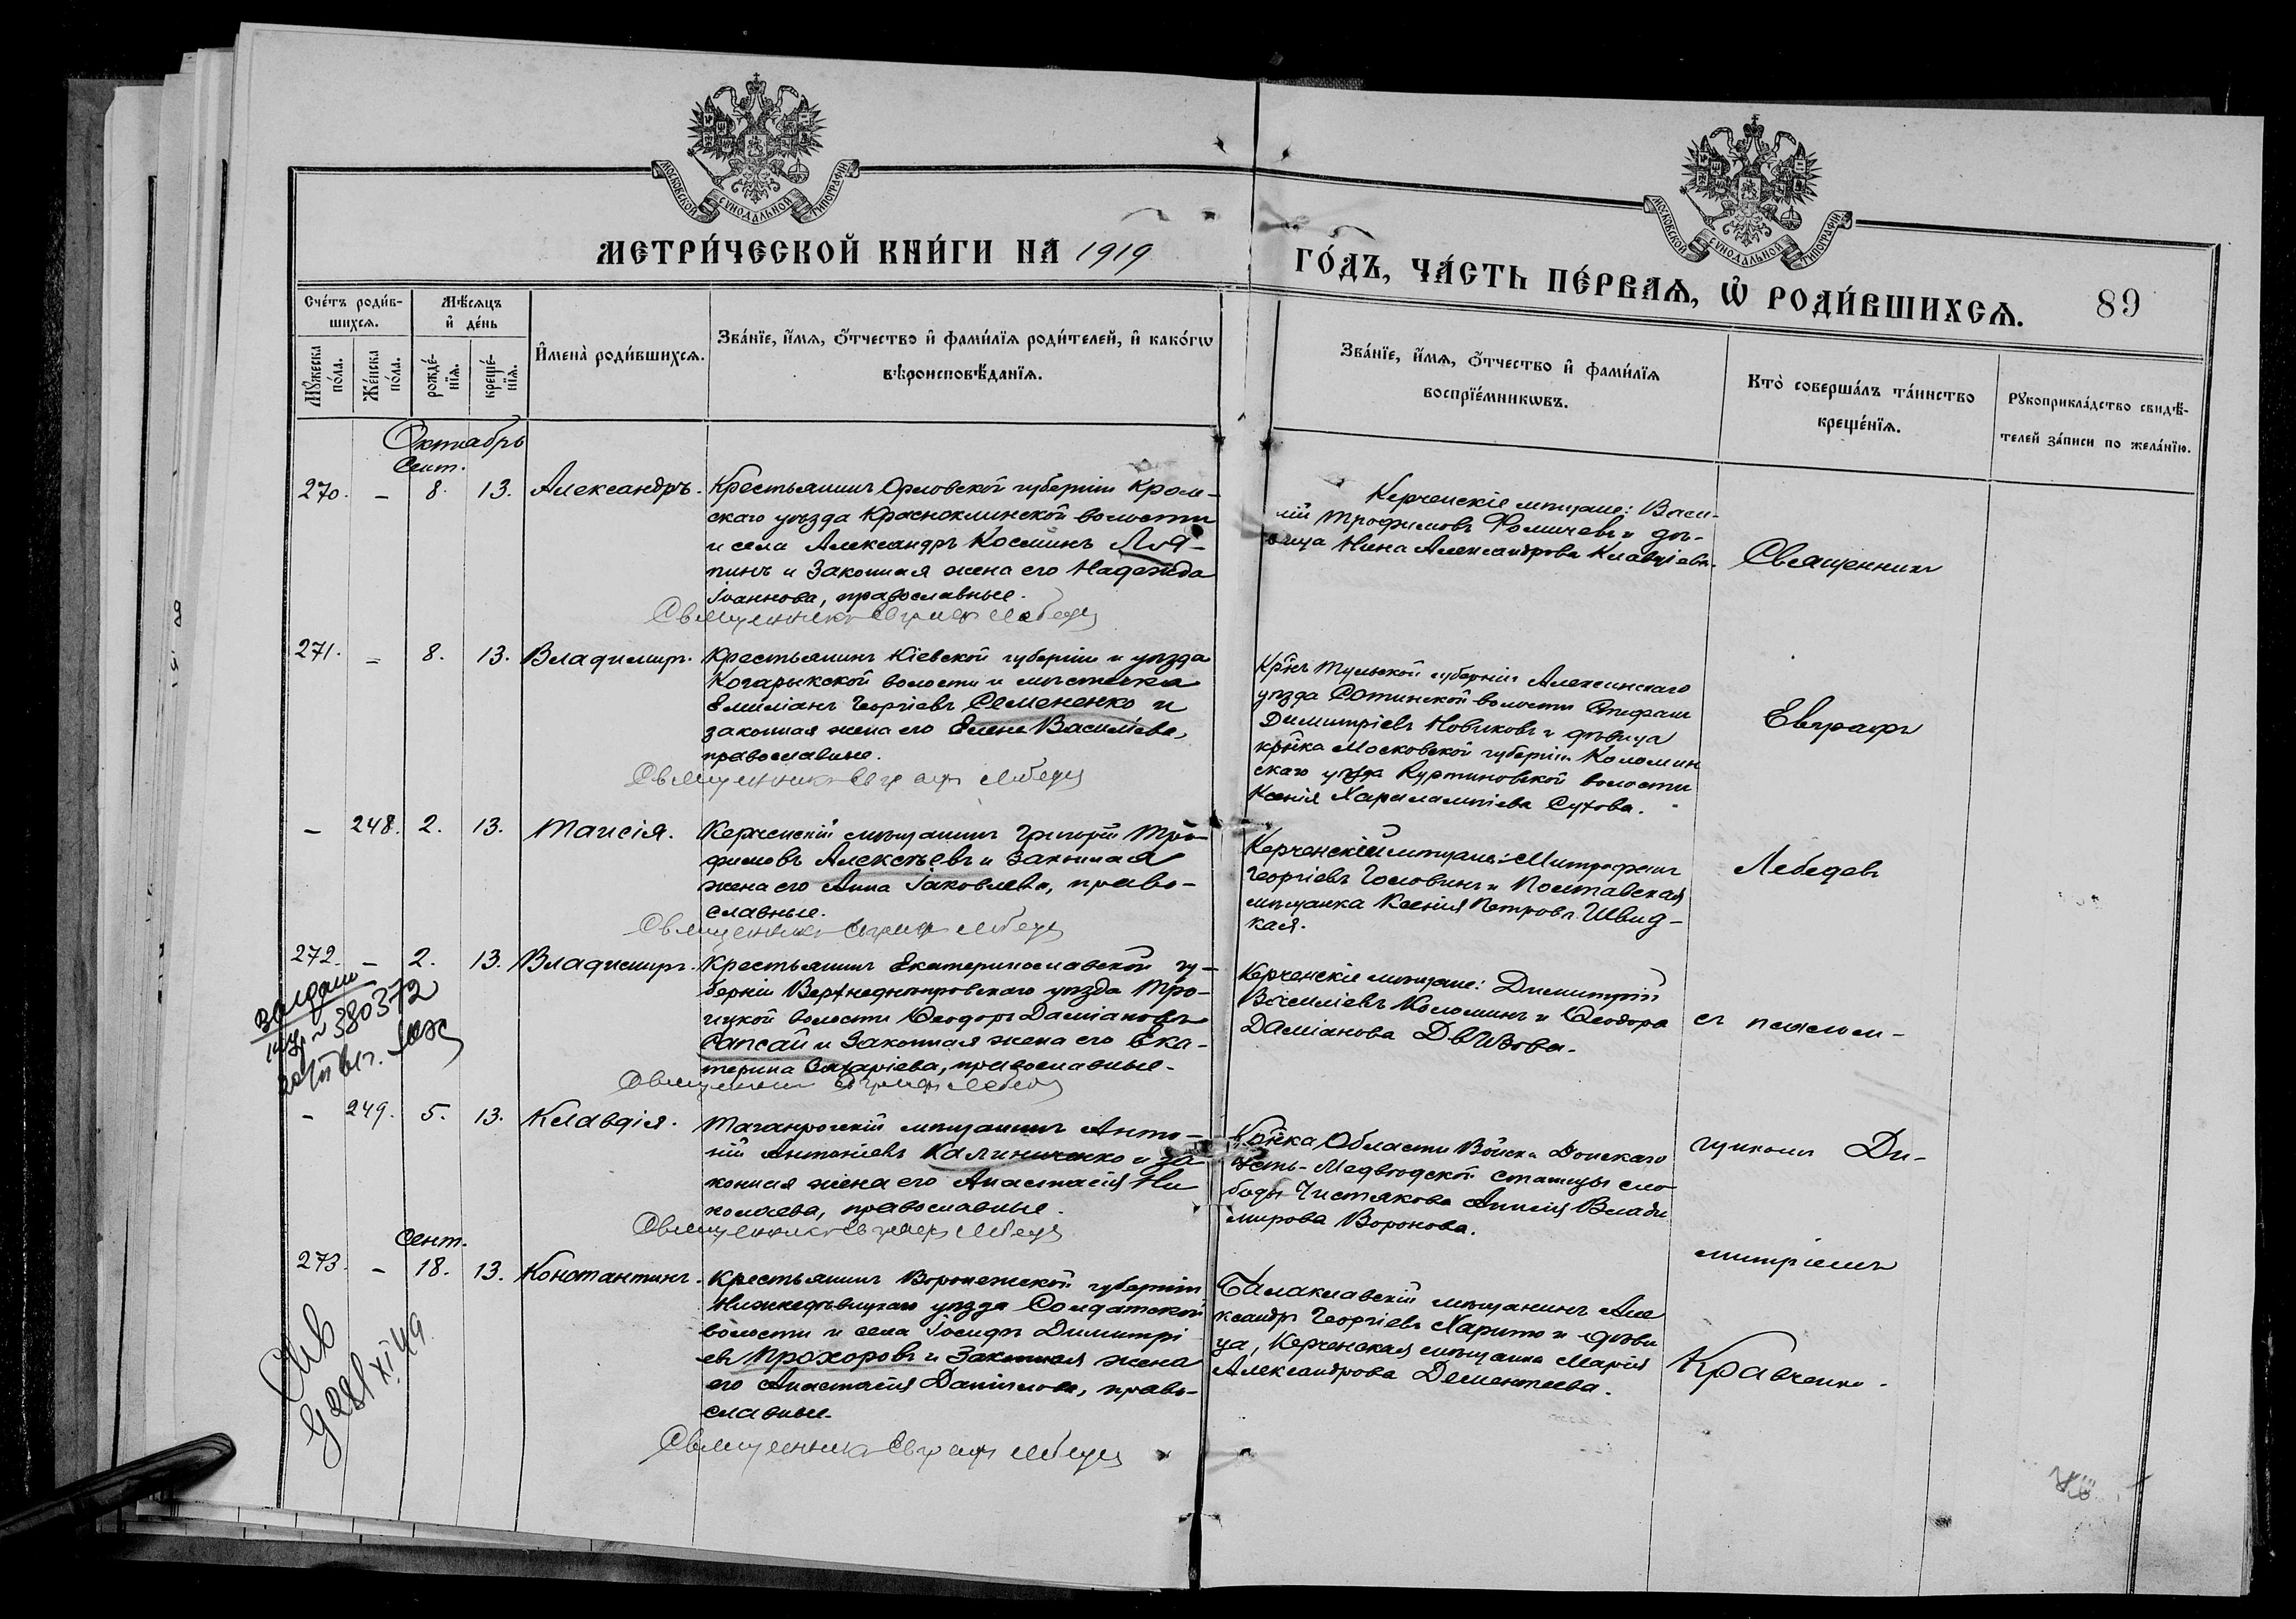 МОСКОВСКОЙ СѴНОДАЛЬНОЙ ТИПОГРАФІИ
МОСКОВСКОЙ СѴНОДАЛЬНОЙ ТИПОГРАФІИ
МЕТРИ́ЧЕСКОЙ КНИ́ГИ НА 1919
ГО́ДЪ, ЧА́СТЬ ПЕ́РВАѦ, Ѡ РОДИ́ВШИХСѦ.
89
Сче́тъ роди́в-
шихсѧ.
Мѣ́сѧцъ
и҆ де́нь
Мꙋ́жеска
по́ла.
Же́нска
по́ла.
рожде́-
нїѧ.
креще́-
нїѧ.
И҆мена̀ роди́вшихсѧ.
Зва́нїе, и҆́мѧ, ѻ҆́тчество и҆ фами́лїѧ роди́телей, и҆ како́гѡ
вѣроисповѣ́данїѧ.
Зва́нїе, и҆́мѧ, ѻ҆́тчество и҆ фами́лїѧ
воспрїе́мникѡвъ.
Кто̀ соверша́лъ та́инство
креще́нїѧ.
Рꙋкоприкла́дство свидѣ́-
телей за́писи по жела́нїю.
Октябрь
Сент.
270. – 8. 13. Александръ.
Крестьянинъ Орловской губерніи Кром-
скаго уѣзда Красноклинской волости
и села Александръ Косминъ Ляп-
пинъ и законная жена его Надежда
Іоаннова, православные.
Священникъ Евграфъ Лебедев
Керченскіе мѣщане: Васи-
лій Трофимовъ Фомичевъ и дѣ-
вица Нина Александрова
Священникъ
271. – 8. 13. Владимиръ.
Крестьянинъ Кіевской губерніи и уѣзда
Кагарлыкской волости и мѣстечка
Емиліанъ Георгіевъ Семененко и
законная жена его Елена Василіева,
православные.
Священникъ Евграфъ Лебедев
Кр-нъ Тульской губерніи Алексинскаго
уѣзда Сотинской волости Стефанъ
Димитріевъ Новиковъ и дѣвица
кр-нка Московской губерніи Коломен
скаго уѣзда Куртиновской волости
Ксенія Харалампіева Сухова.
Евграфъ
– 248. 2. 13. Таисія.
Керченскій мѣщанинъ Григорій Тро-
фимовъ Алексѣевъ и законная
жена его Анна Іаковлева, право-
славные.
Священникъ Евграфъ Лебедев
Керченскій мѣщане: Митрофанъ
Георгіевъ Головинъ и Полтавская
мѣщанка Ксенія Петрова Швид-
кая.
Лебедевъ
272. – 2. 13. Владимиръ.
Крестьянинъ Екатеринославской гу-
берніи Верхнеднѣпровскаго уѣзда Тро-
ицкой волости Ѳеодоръ Даміановъ
Сапсай и законная жена его Ека-
терина Захаріева, православные.
Священникъ Евграфъ Лебедев
Керченскіе мѣщане: Димитрій
Василіевъ Коломинъ и Ѳеодора
Даміанова Двизова.
съ псалом-
№ 380372
– 249. 5. 13. Клавдія.
Таганрогскій мѣщанинъ Анто-
ній Антоніевъ Калиниченко и за-
конная жена его Анастасія Ни
колаева, православные.
Священникъ Евграфъ Лебедев
Кр-нка Области Войска Донскаго
Усть-Медвѣдской станицы сло
боды Чистякова Анисія Влади
мирова Воронова.
щикомъ Ди-
Сент.
273. – 18. 13. Константинъ.
Крестьянинъ Воронежской губерніи
Нижнедѣвицкаго уѣзда Солдатской
волости и села Іосифъ Димитрі
евъ Прохоровъ и законная жена
его Анастасія Даніилова, право-
славные.
Священникъ Евграфъ Лебедев
Балаклавскій мѣщанинъ Але
ксандръ Георгіевъ Харито и дѣви
ца, Керченская мѣщанка Марія
Александрова Дементеева.
митріемъ
Кравченко.